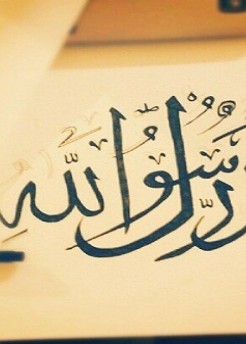 رَسُولُ اللَّهِ